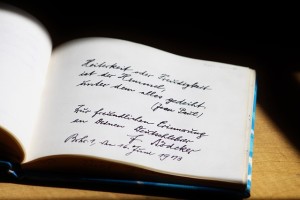 Heiterkeit oder Freudigkeit
ist der Himmel,
unter dem alles gedeiht.
(Jean Paul)
Zur freundlichen Erinnerung
an Deinen Deutschlehrer
F.
den 12. Juni 1978